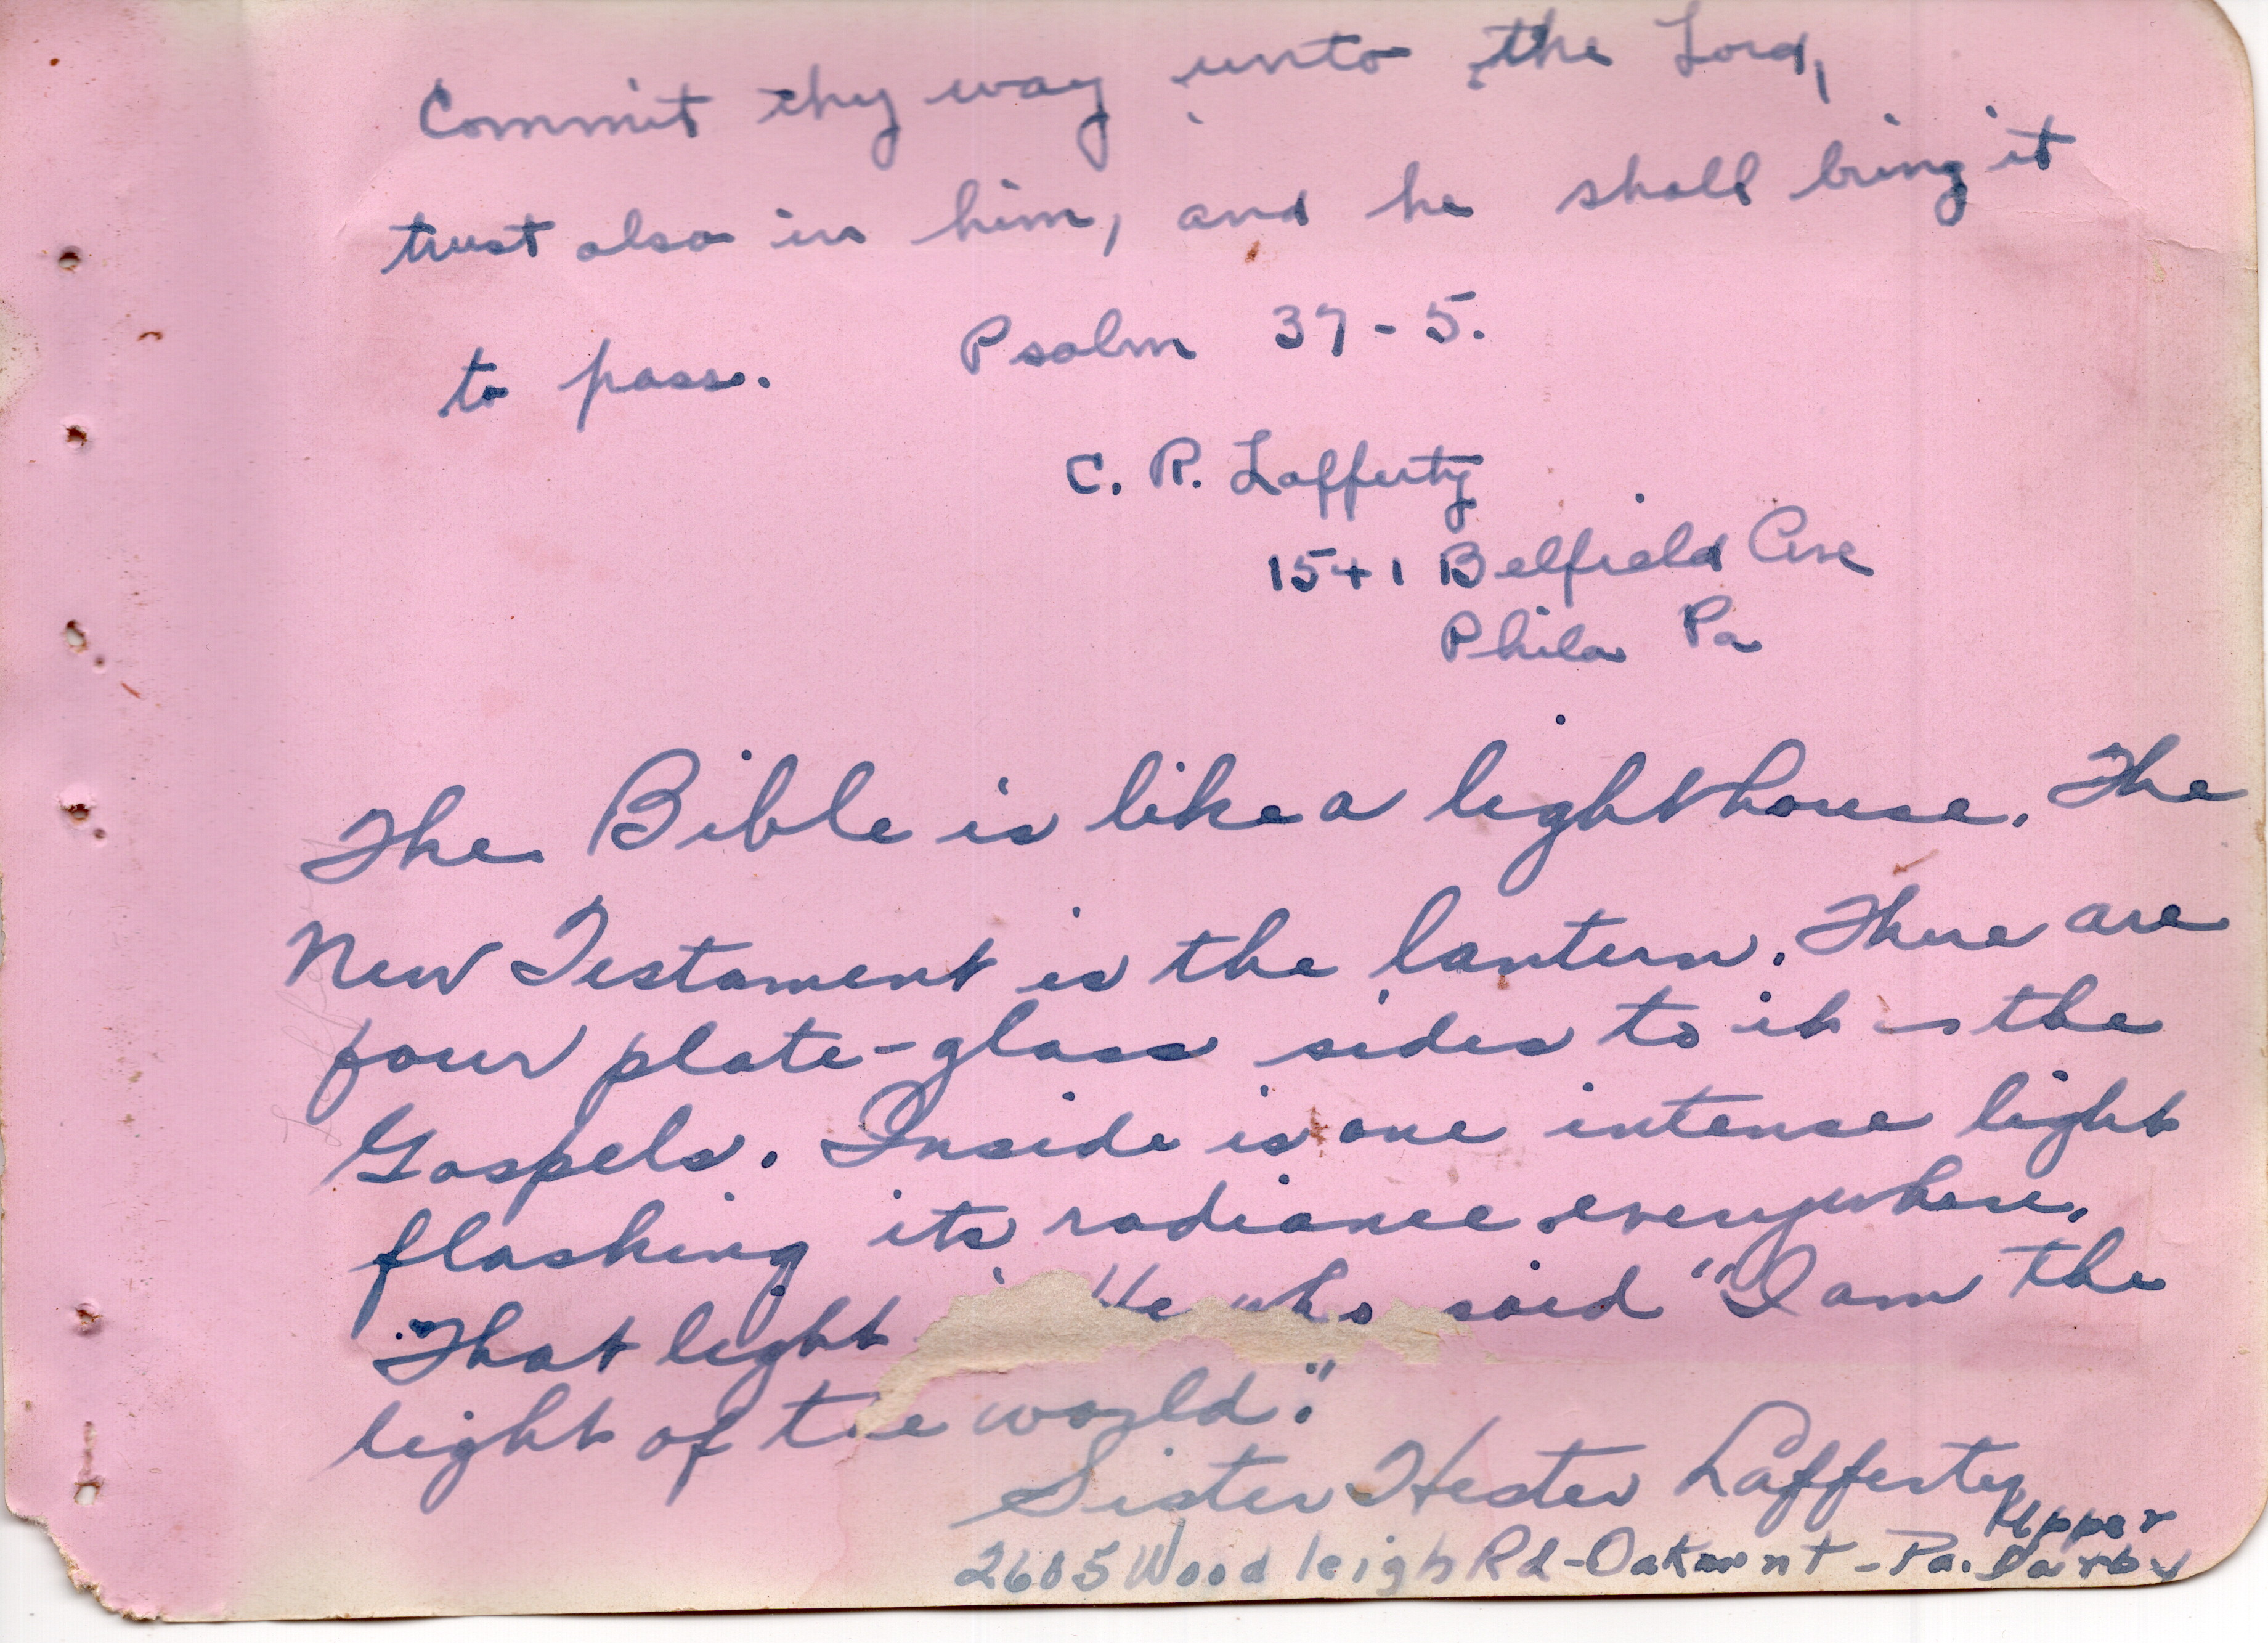 Commit thy way unto the Lord,
trust also in him, and he shall bring it
to pass. Psalm 37-5.
C. R. Lafferty
1541 Belfield Ave
Phila Pa
The Bible is like a lighthouse. The
New Testament is the lantern. There are
four plate-glass sides to it - the
Gospels. Inside is one intense light
flashing its radiance everywhere.
That light He who said "I am the
light of the world."
Sister Hester Lafferty
Upper
2605 Woodleigh Rd-Oakmont-Pa. Darby